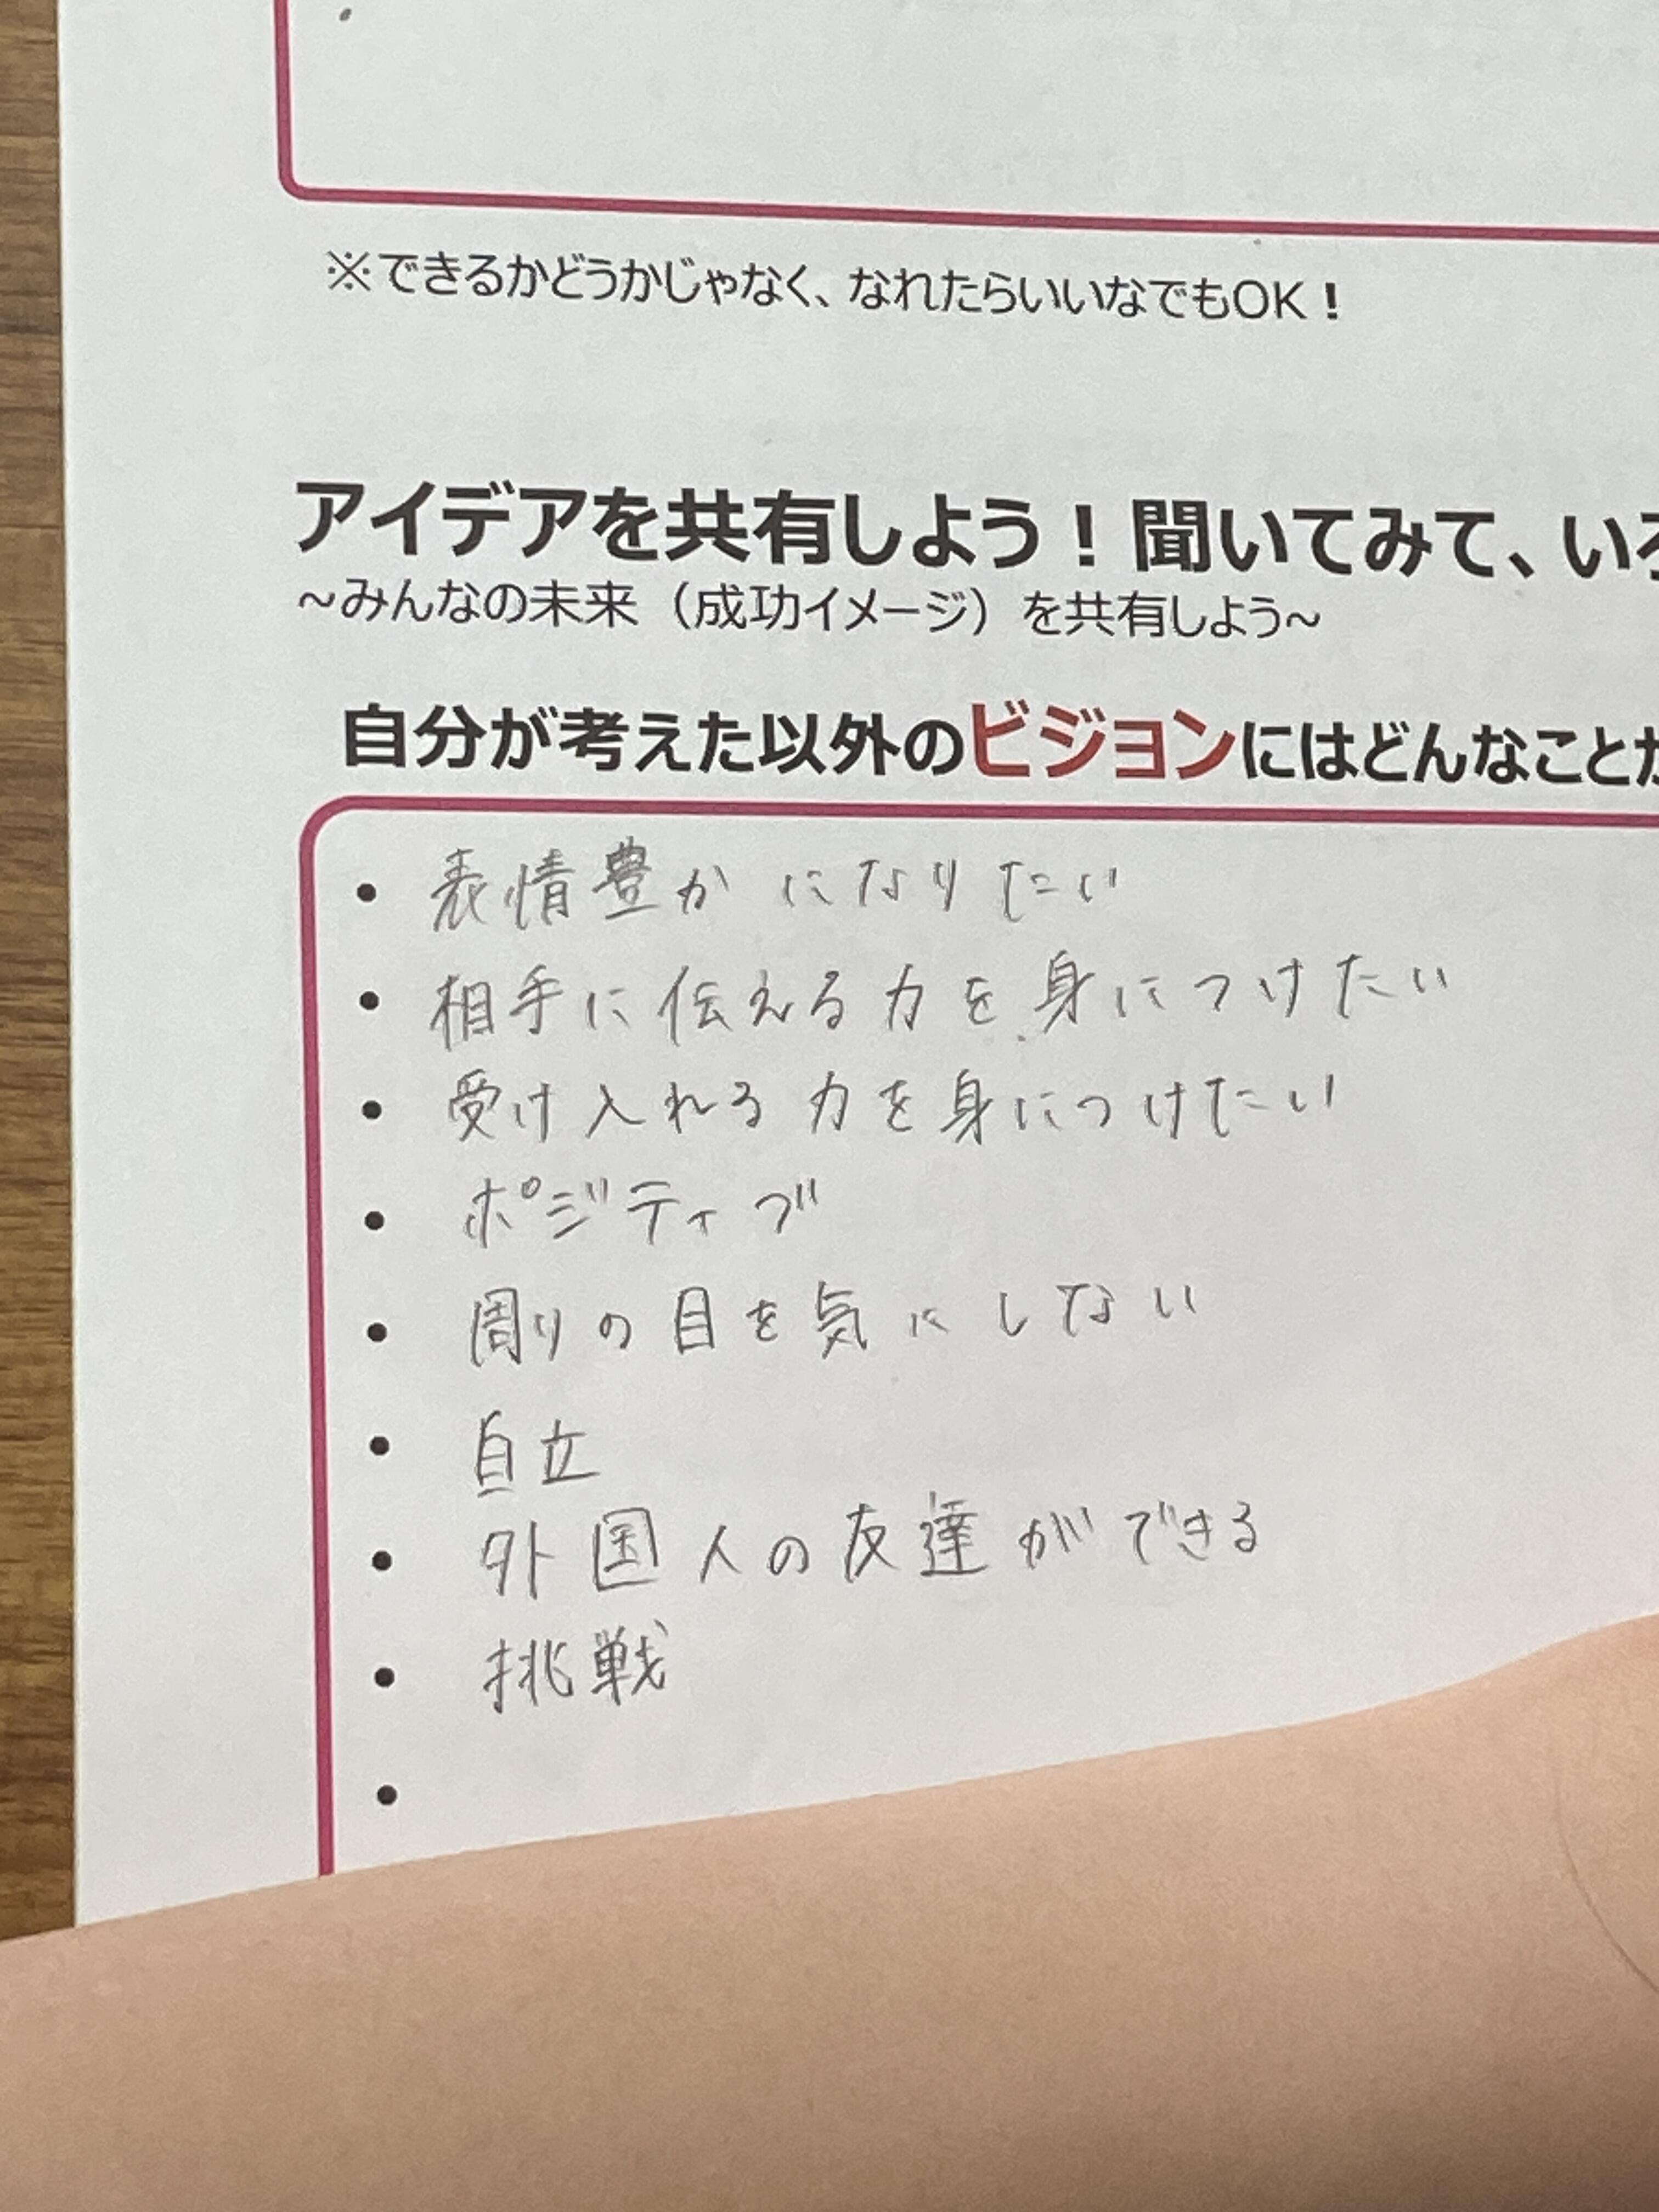 ※できるかどうかじゃなく、なれたらいいなでもOK！
アイデアを共有しよう！聞いてみて、いろ
~みんなの未来（成功イメージ）を共有しよう~
自分が考えた以外のビジョンにはどんなことが
• 表情豊かになりたい
• 相手に伝える力を身につけたい
• 受け入れる力を身につけたい
• ポジティブ
• 周りの目を気にしない
• 自立
• 外国人の友達ができる
• 挑戦
•